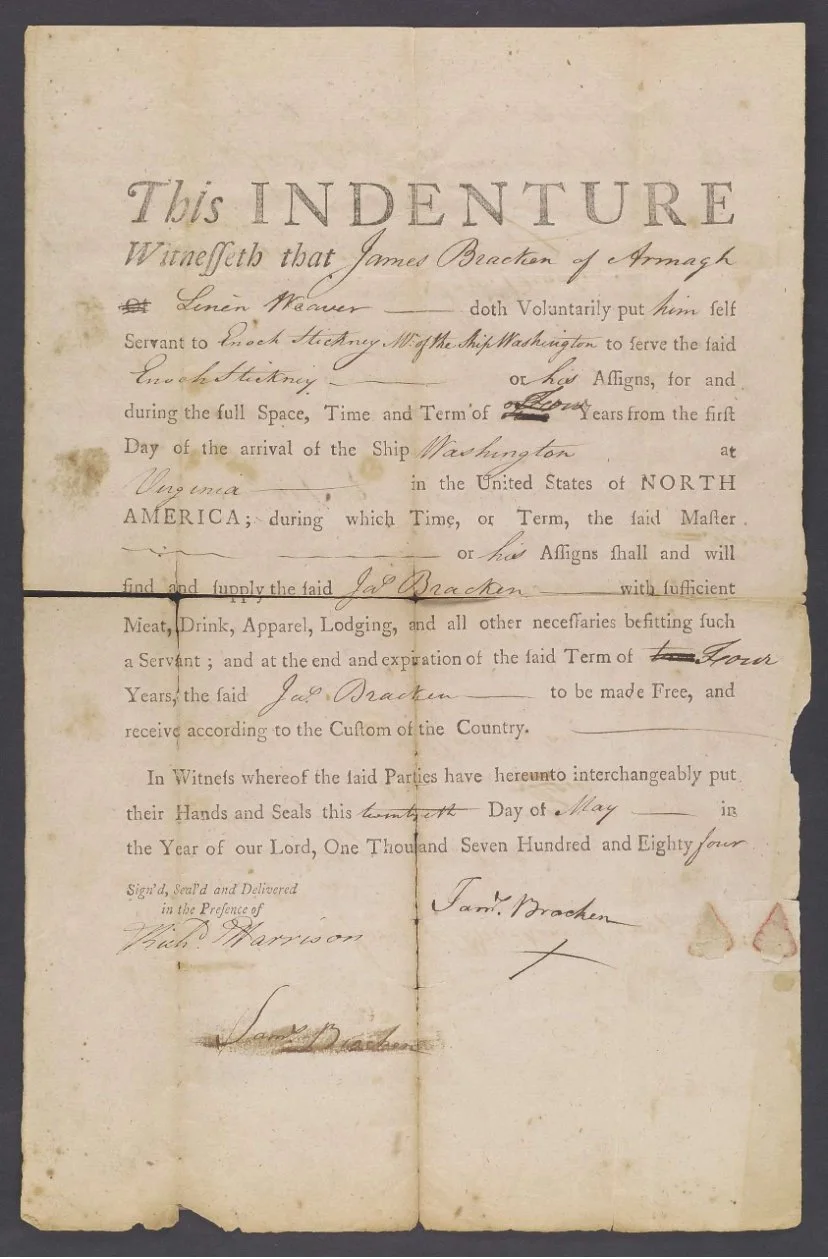 This INDENTURE
Witneſſeth that James Bracken of Armagh
Linen Weaver doth Voluntarily put him ſelf
Servant to Enoch Stickney Mr. of the Ship Washington to ſerve the ſaid
Enoch Stickney or his Aſſigns, for and
during the full Space, Time and Term of Four Years from the firſt
Day of the arrival of the Ship Washington at
Virginia in the United States of NORTH
AMERICA; during which Time, or Term, the ſaid Maſter
or his Aſſigns ſhall and will
find and ſupply the ſaid Jas Bracken with ſufficient
Meat, Drink, Apparel, Lodging, and all other neceſſaries befitting ſuch
a Servant ; and at the end and expiration of the ſaid Term of Four
Years, the ſaid Jas. Bracken to be made Free, and
receive according to the Cuſtom of the Country.
In Witneſs whereof the ſaid Parties have hereunto interchangeably put
their Hands and Seals this twentyeth Day of May in
the Year of our Lord, One Thouſand Seven Hundred and Eighty four
Sign'd, Seal'd and Delivered
in the Preſence of
Richd. Harrison
Jams. Bracken
X
Jams. Bracken